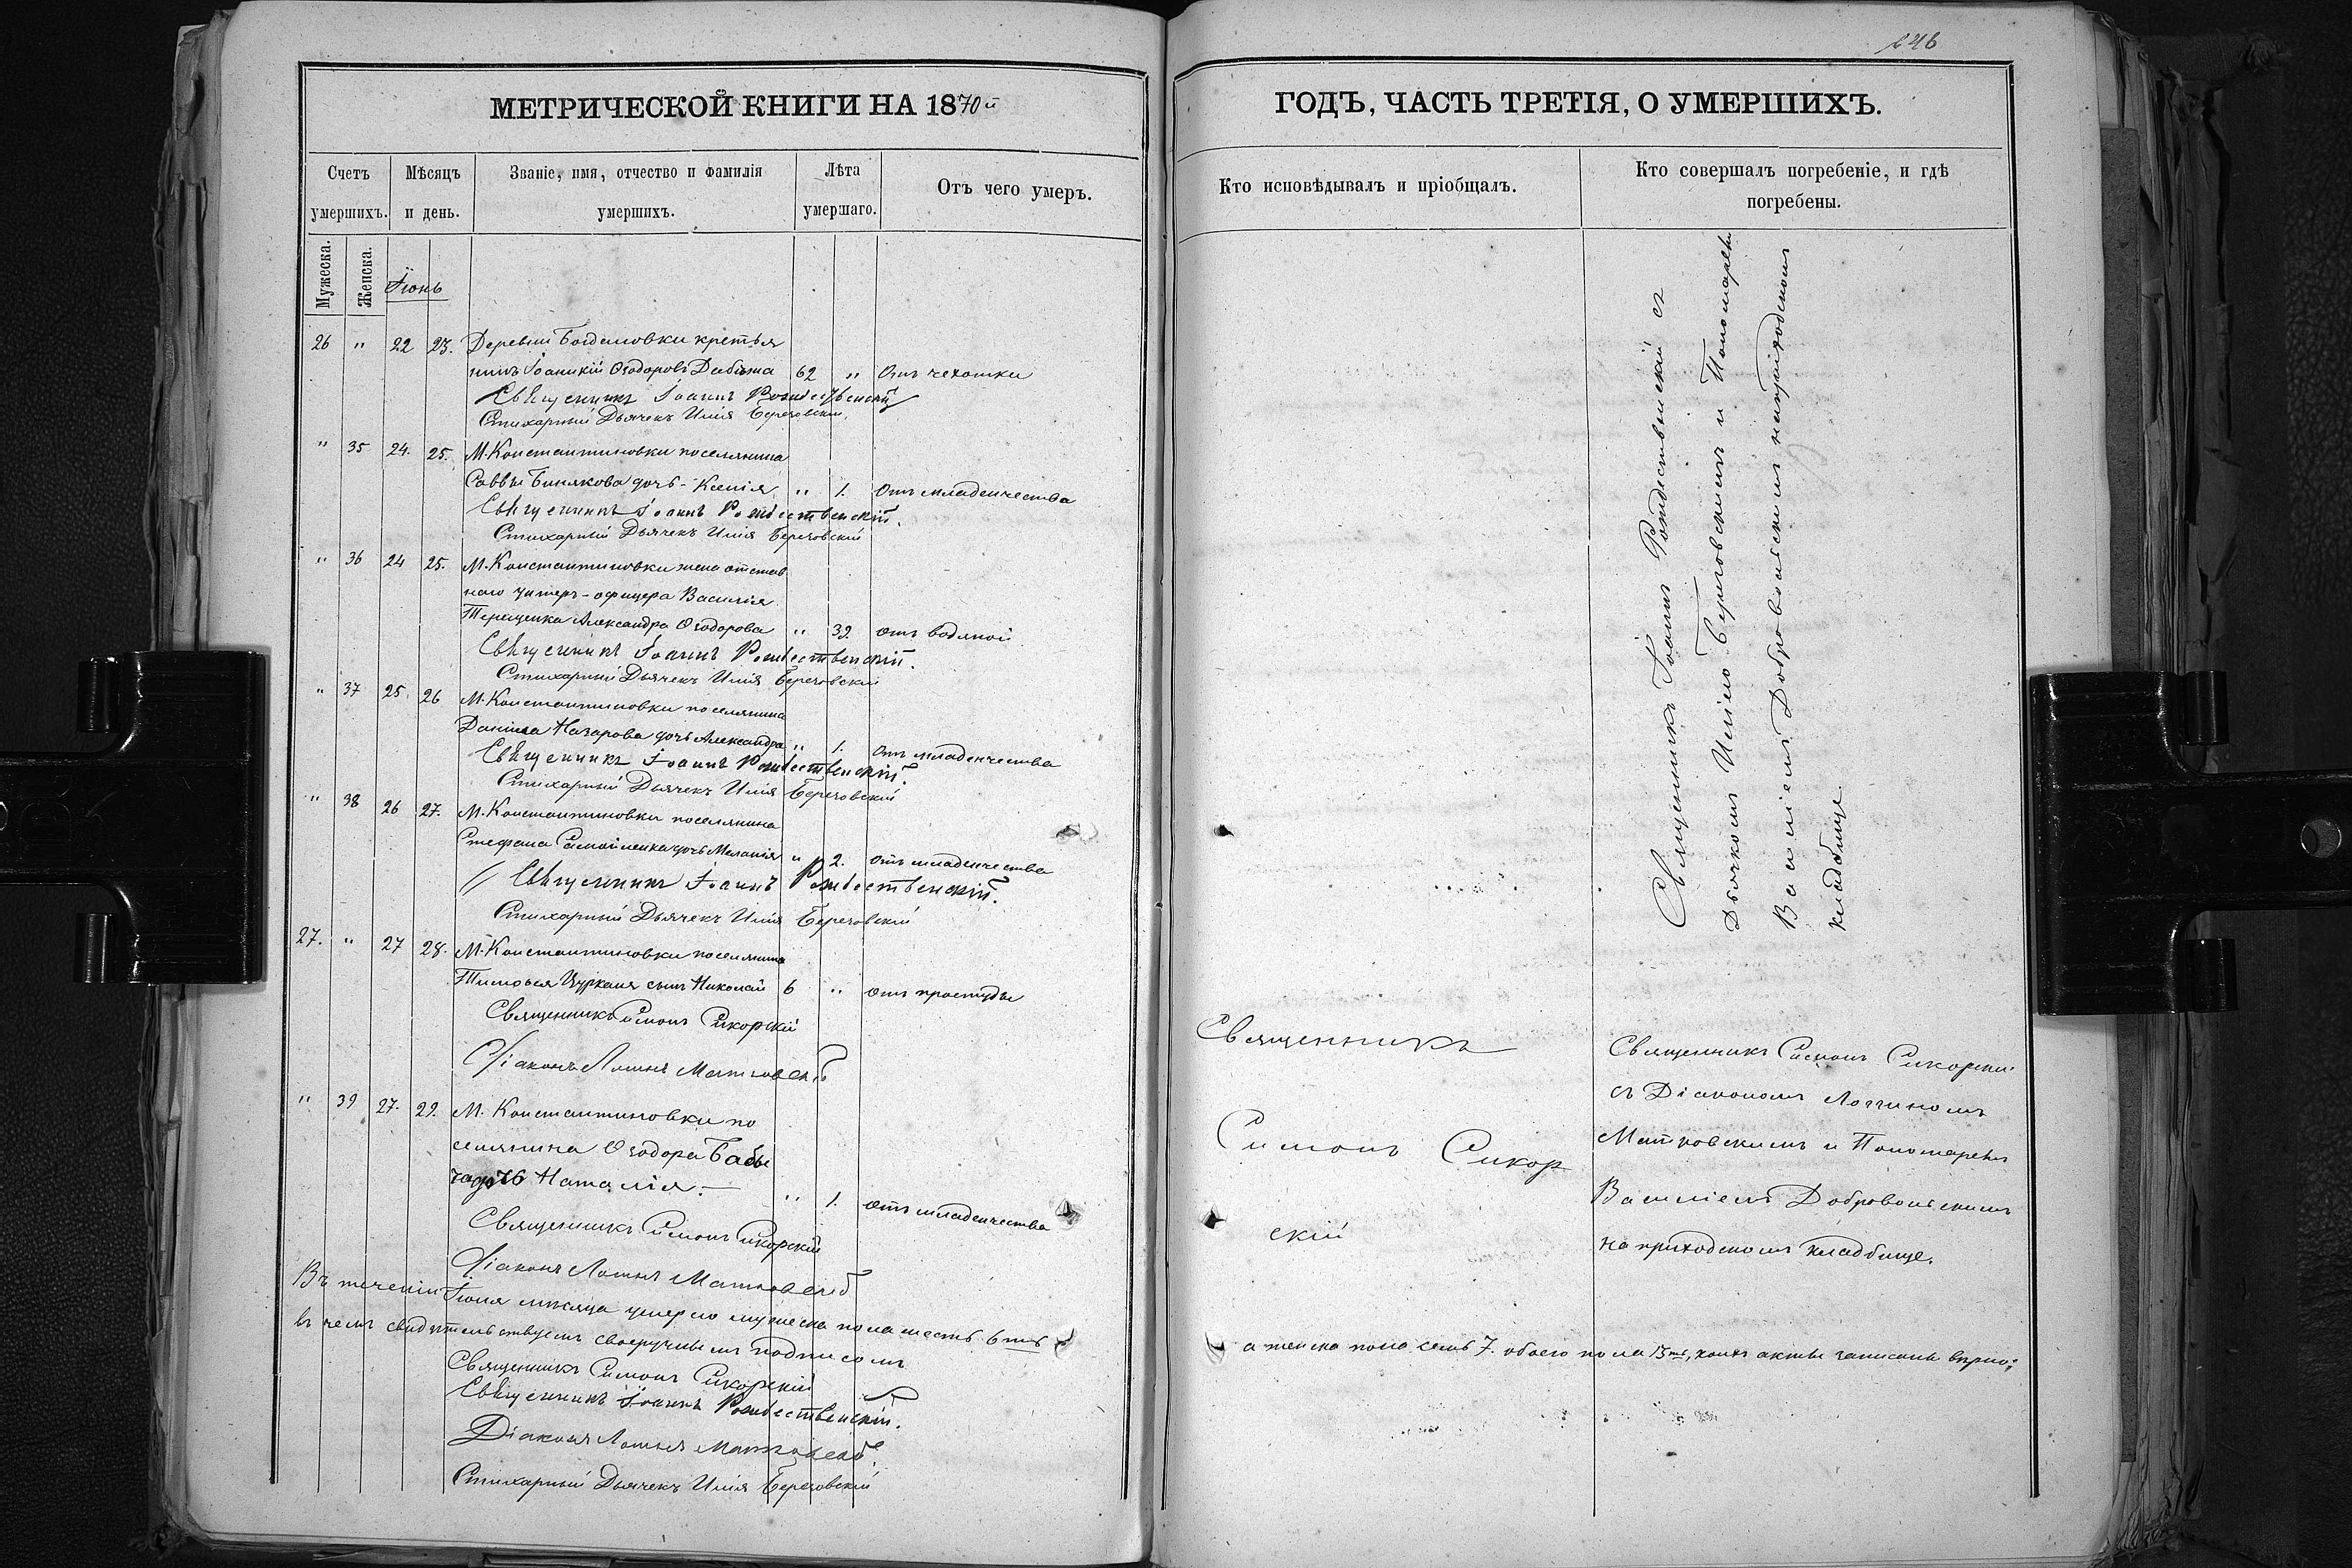 246
МЕТРИЧЕСКОЙ КНИГИ НА 1870й
ГОДЪ, ЧАСТЬ ТРЕТІЯ, О УМЕРШИХЪ.
Счетъ умершихъ.
Мѣсяцъ и день.
Званіе, имя, отчество и фамилія умершихъ.
Лѣта умершаго.
Отъ чего умеръ.
Кто исповѣдывалъ и пріобщалъ.
Кто совершалъ погребеніе, и гдѣ погребены.
Мужеска.
Женска.
Іюнь
26 " 22 23. Деревни Богдановки крестья
нинъ Іоаникій Ѳеодоровъ 62 " Отъ чехотки
Священникъ Іоаннъ Рождественскій
Стихарный Дьячекъ Илія Березовскій
" 35 24. 25. М. Константиновки поселянина
Саввы Бинякова дочь - Ксенія " 1. Отъ младенчества
Священникъ Іоаннъ Рождественскій.
Стихарный Дьячекъ Илія Березовскій
" 36 24 25. М. Константиновки жена отстав
наго унтеръ-офицера Василія
Терещенка Александра Ѳеодорова " 39. отъ водяной
Священникъ Іоаннъ Рождественскій.
Стихарный Дьячекъ Илія Березовскій
" 37 25 26 М. Константиновки поселянина
Даніила Назарова дочь Александра " 1. Отъ младенчества
Священникъ Іоаннъ Рождественскій.
Стихарный Дьячекъ Илія Березовскій
" 38 26 27. М. Константиновки поселянина
Стефана Самойленка дочь Меланія " 2. Отъ младенчества
Священникъ Іоаннъ Рождественскій.
Стихарный Дьячекъ Илія Березовскій
27. " 27 28. М. Константиновки поселянина
Тимофея Цуркана сынъ Николай 6 " отъ простуды
Священникъ Симонъ Сикорскій
Діаконъ Логинъ Матковскій
" 39 27. 29. М. Константиновки по
селянина Ѳеодора
дочь Наталія.— " 1. отъ младенчества
Священникъ Симонъ Сикорскій
Діаконъ Логинъ Матковскій
Въ теченіи Іюня мѣсяца умерло мужеска пола шесть 6ть
а женска пола семь 7. обоего пола 13ть, коихъ акты записаны вѣрно;
въ чемъ свидѣтельствуемъ своеручнымъ подписомъ
Священникъ Симонъ Сикорскій
Священникъ Іоаннъ Рождественскій.
Діаконъ Логинъ Матковскій.
Стихарный Дьячекъ Илія Березовскій
Священникъ Іоаннъ Рождественскій съ
Дьячкомъ Иліею Березовскимъ и Пономаремъ
Василіемъ Добровольскимъ на приходскомъ
кладбище.
Священникъ
Симонъ Сикор
скій
Священникъ Симонъ Сикорскій
съ Діакономъ Логгиномъ
Матковскимъ и Пономаремъ
Василіемъ Добровольскимъ
на приходскомъ кладбище.